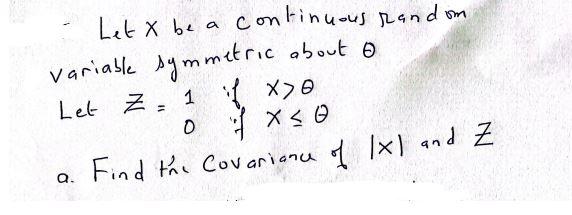 - Let X be a continuous random
variable symmetric about θ
Let Z = 1 if X>θ
0 if X ≤ θ
a. Find the Covariance of |X| and Z